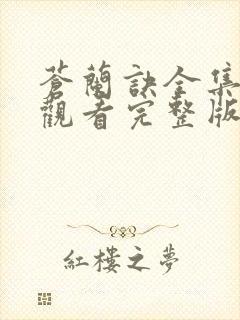 蒼蘭訣全集
觀看完整版
紅樓之夢